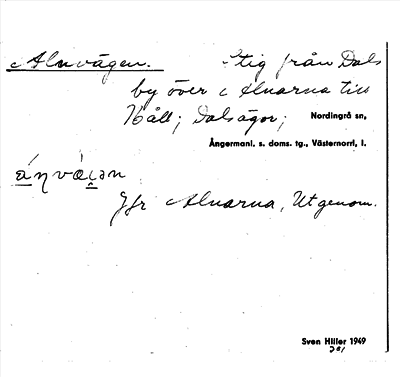 Alnvägen. Stig från Dals
by över Alnarna till
Håll; Dalsågor; Nordingrå sn,
Ångermanl. s. doms. tg., Västernorrl. l.
Jfr Alnarna, Utgenom.
Sven Hiller 1949